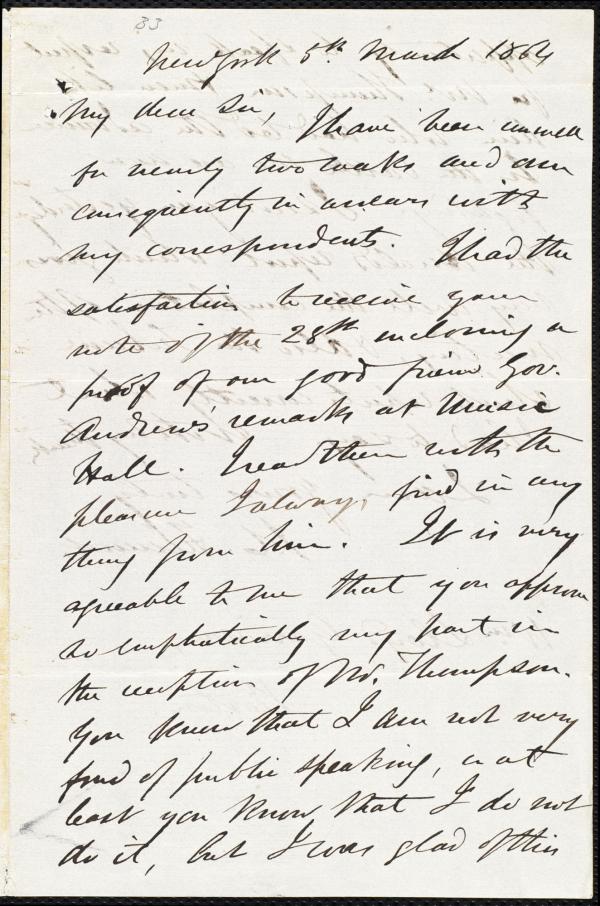 33
New York 5th March 1864
My dear Sir,
I have been unwell
for nearly two weeks and am
consequently in arrears with
my correspondents. I had the
satisfaction to receive your
note of the 28th inclosing a
proof of our good friend Gov.
Andrew's remarks at Music
Hall. I read them with the
pleasure I always find in any
thing from him. It is very
agreeable to me that you approve
so emphatically my part in
the reception of Mr. Thompson.
You know that I am not very
fond of public speaking, or at
least you know that I do not
do it, but I was glad of this